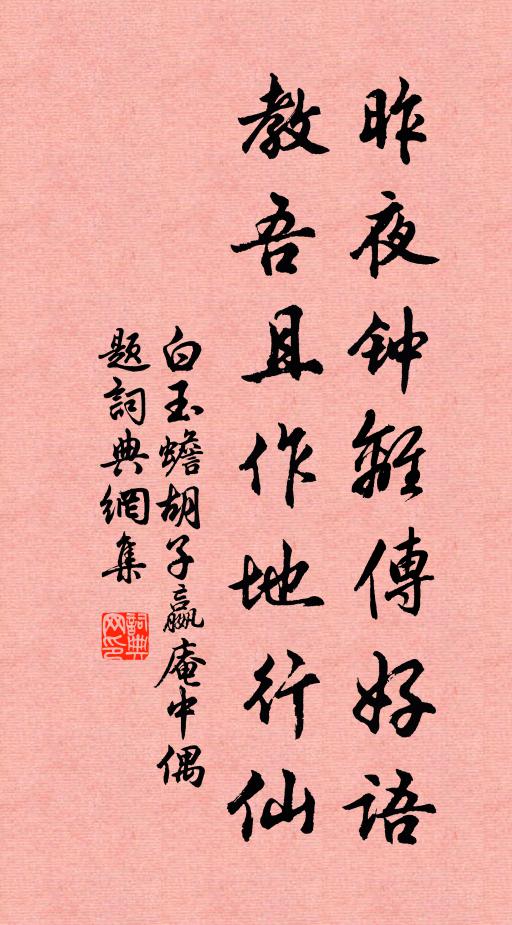 昨夜钟離傳好語
教吾且作地行仙
白玉蟾胡子嬴庵中偶
題詞典網集
詞典
网印